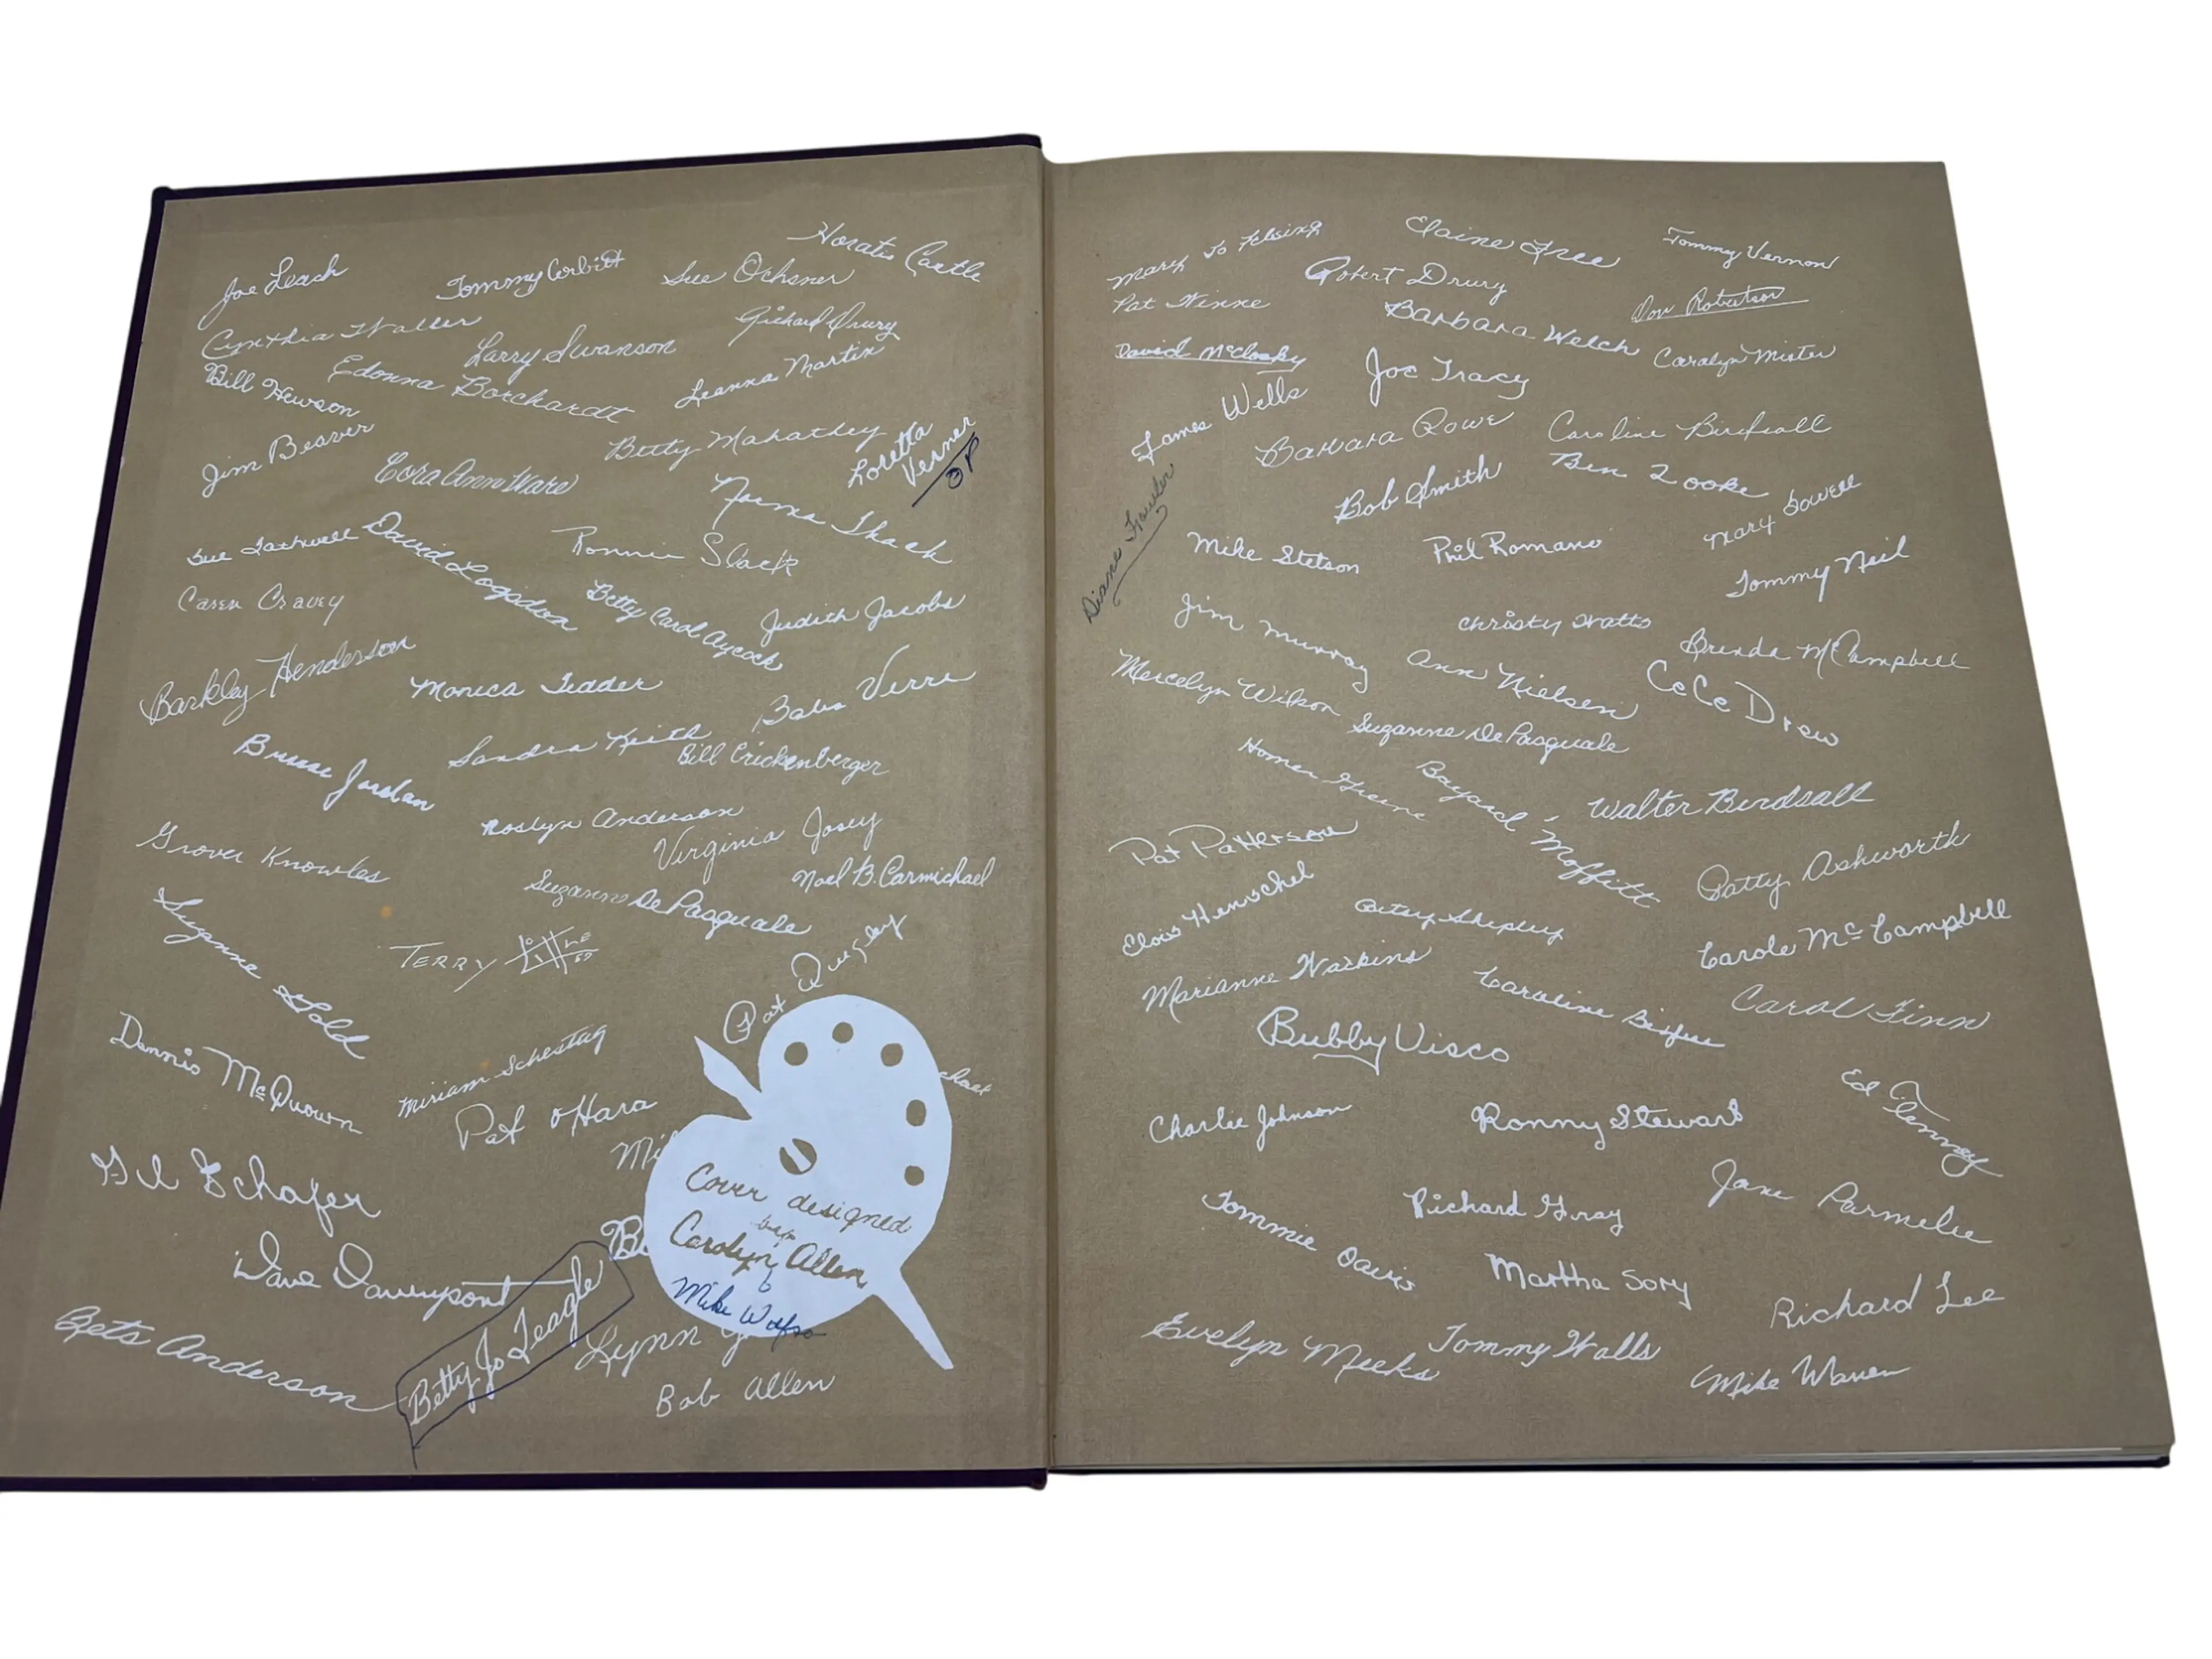 Joe Leach
Tommy Corbitt
Sue Ochsner
Horatio Castle
Cynthia Waller
Larry Swanson
Richard Drury
Bill Hewson
Edonna Borchardt
Leanna Martin
Jim Beaver
Cora Ann Ware
Betty Mahathey
Loretta
Verner
OP
Norma Shack
Sue
David Logsdon
Ronnie Slack
Caren Cravey
Betty Carol Aycock
Judith Jacobs
Barkley Henderson
Monica Tedder
Sandra Keith
Bill Crickenberger
Jordan
Roslyn Anderson
Virginia Josey
Grover Knowles
Suzanne DePasquale
Noel B. Carmichael
Terry
Pat Quigley
Dennis McQuown
Miriam Schestag
Pat O'Hara
Mi
chael
Gil Schafer
Cover designed
by
Carolyn Allen
Mike
Dave Davenport
Betty Jo Teagle
Lynn
Bets Anderson
Bob Allen
Mary Jo
Elaine Free
Tommy Vernon
Pat Winne
Robert Drury
Barbara Welch
Don Robertson
David McClosky
Joe Tracy
Carolyn Mister
James Wells
Barbara Rowe
Caroline Birdsall
Bob Smith
Ben Zooke
Mary Sowell
Diane Fowler
Mike Stetson
Phil Romano
Tommy Neil
Jim Murray
Christy Watts
Brenda McCampbell
Mercelyn Wilson
Ann Nielsen
CeCe Drew
Suzanne DePasquale
Homer Greene
Bayard Moffitt
Walter Birdsall
Pat Patterson
Patty Ashworth
Elois Henschel
Betsy Shipley
Carole McCampbell
Marianne Watkins
Caroline
Carol Finn
Bubby Visco
Charlie Johnson
Ronny Stewart
Ed C. Tenney
Tommie Davis
Richard Gray
Jane Parmelee
Martha Sory
Richard Lee
Evelyn Meeks
Tommy Walls
Mike Warren